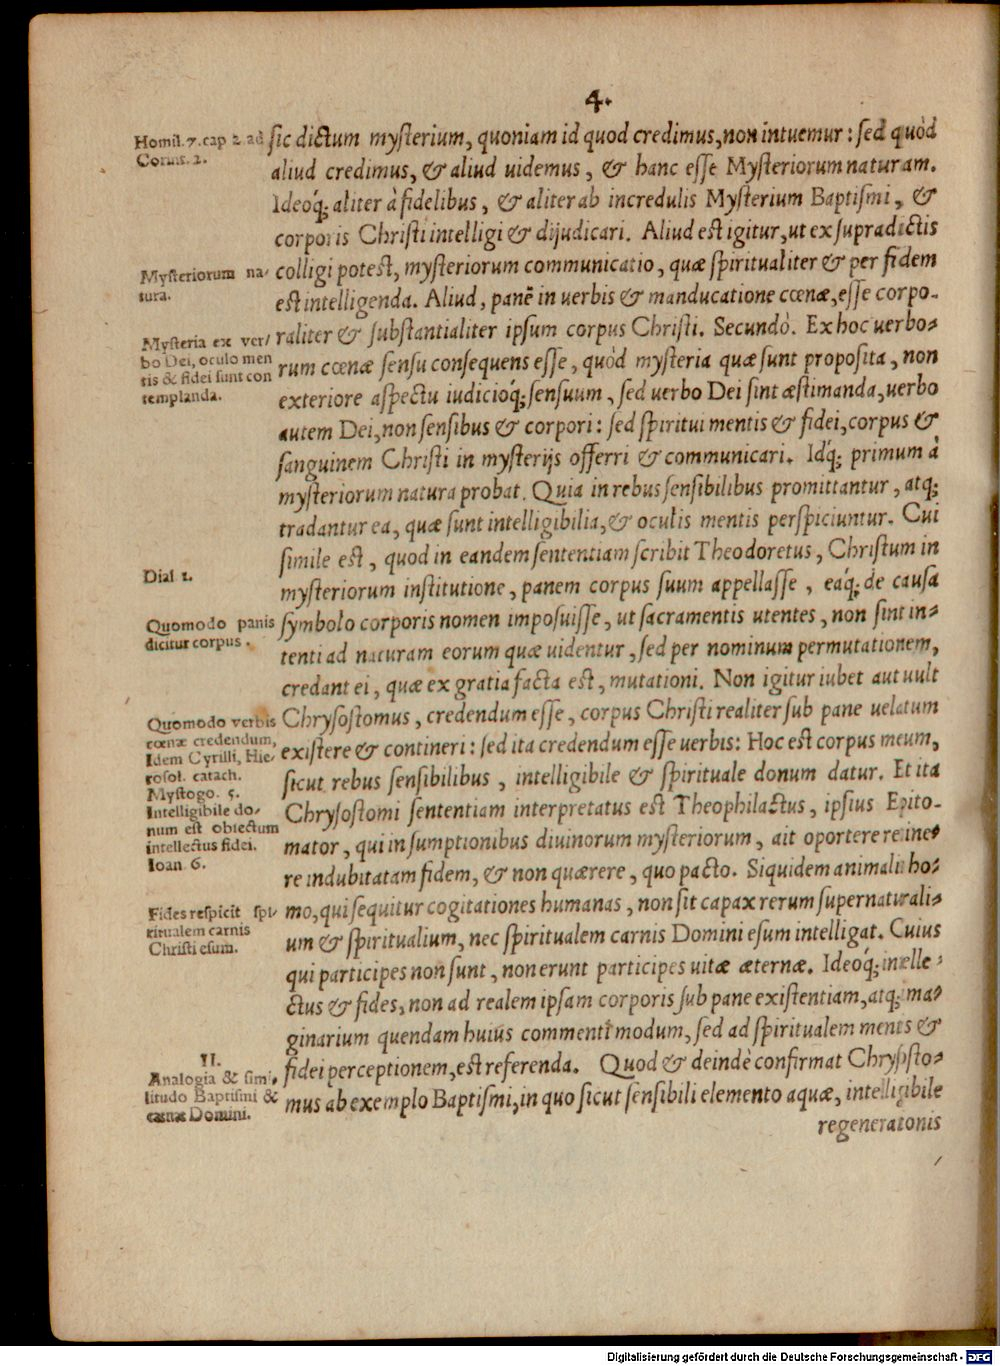 4.
Homil. 7. cap 2 ad
Corint. 2.
sic dictum mysterium, quoniam id quod credimus, non intuemur: sed quòd
aliud credimus, & aliud uidemus, & hanc esse Mysteriorum naturam.
Ideoq́; aliter à fidelibus, & aliter ab incredulis Mysterium Baptismi, &
corporis Christi intelligi & dijudicari. Aliud est igitur, ut ex supradictis
Mysteriorum na-
tura.
colligi potest, mysteriorum communicatio, quæ spiritualiter & per fidem
est intelligenda. Aliud, panē in uerbis & manducatione cœnæ, esse corpo-
raliter & substantialiter ipsum corpus Christi. Secundò. Ex hoc uerbo-
Mysteria ex ver-
bo Dei, oculo men
tis & fidei sunt con
templanda.
rum cœnæ sensu consequens esse, quòd mysteria quæ sunt proposita, non
exteriore aspectu iudicioq́; sensuum, sed uerbo Dei sint æstimanda, uerbo
autem Dei, non sensibus & corpori: sed spiritui mentis & fidei, corpus &
sanguinem Christi in mysterijs offerri & communicari. Idq́; primum à
mysteriorum natura probat. Quia in rebus sensibilibus promittantur, atq;
tradantur ea, quæ sunt intelligibilia, & oculis mentis perspiciuntur. Cui
simile est, quod in eandem sententiam scribit Theodoretus, Christum in
Dial 1.
mysteriorum institutione, panem corpus suum appellasse, eaq́; de causa
Quomodo panis
dicitur corpus.
symbolo corporis nomen imposuisse, ut sacramentis utentes, non sint in-
tenti ad naturam eorum quæ uidentur, sed per nominum permutationem,
credant ei, quæ ex gratia facta est, mutationi. Non igitur iubet aut uult
Quomodo verbis
cœnæ credendum,
Idem Cyrilli, Hie-
rosol. catach.
Mystogo. 5.
Intelligibile do-
num est obiectum
intellectus fidei.
Ioan. 6.
Chrysostomus, credendum esse, corpus Christi realiter sub pane uelatum
existere & contineri: sed ita credendum esse uerbis: Hoc est corpus meum,
sicut rebus sensibilibus, intelligibile & spirituale donum datur. Et ita
Chrysostomi sententiam interpretatus est Theophilactus, ipsius Epito-
mator, qui in sumptionibus diuinorum mysteriorum, ait oportere retine-
re indubitatam fidem, & non quærere, quo pacto. Siquidem animalis ho-
Fides respicit spi-
ritualem carnis
Christi esum.
mo, qui sequitur cogitationes humanas, non sit capax rerum supernaturali-
um & spiritualium, nec spiritualem carnis Domini esum intelligat. Cuius
qui participes non sunt, non erunt participes uitæ æternæ. Ideoq́; intelle-
ctus & fides, non ad realem ipsam corporis sub pane existentiam, atq; ima-
ginarium quendam huius commenti modum, sed ad spiritualem mentis &
II.
Analogia & simi-
litudo Baptismi &
cœnæ Domini.
fidei perceptionem, est referenda. Quod & deindè confirmat Chrysosto-
mus ab exemplo Baptismi, in quo sicut sensibili elemento aquæ, intelligibile
regenerationis
Digitalisierung gefördert durch die Deutsche Forschungsgemeinschaft - DFG